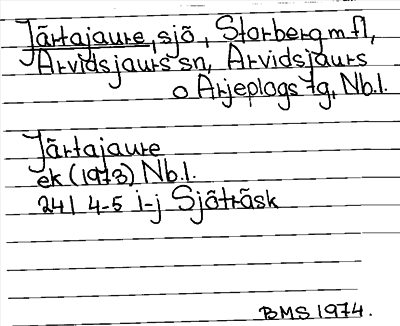 Järtajaure, sjö, Storberg m fl,
Arvidsjaurs sn, Arvidsjaurs
o Arjeplogs tg, Nb.l.
Järtajaure
ek (1973) Nb.l.
24I 4-5 i-j Sjöträsk
BMS 1974.